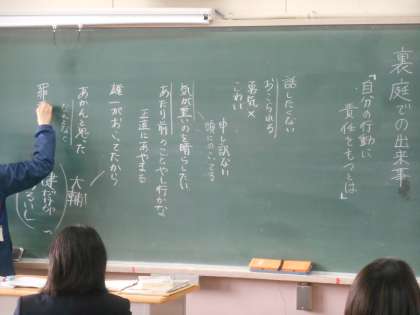 裏庭での出来事
「自分の行動に
責任をもつとは」
話したくない
おこられる
勇気×
こわい
申し訳ない
頭にのこってる
気が重いのを晴らしたい
あたり前のことやし行かな
正直にあやまる
雄一がおいてたから
大輔
あかんと思った